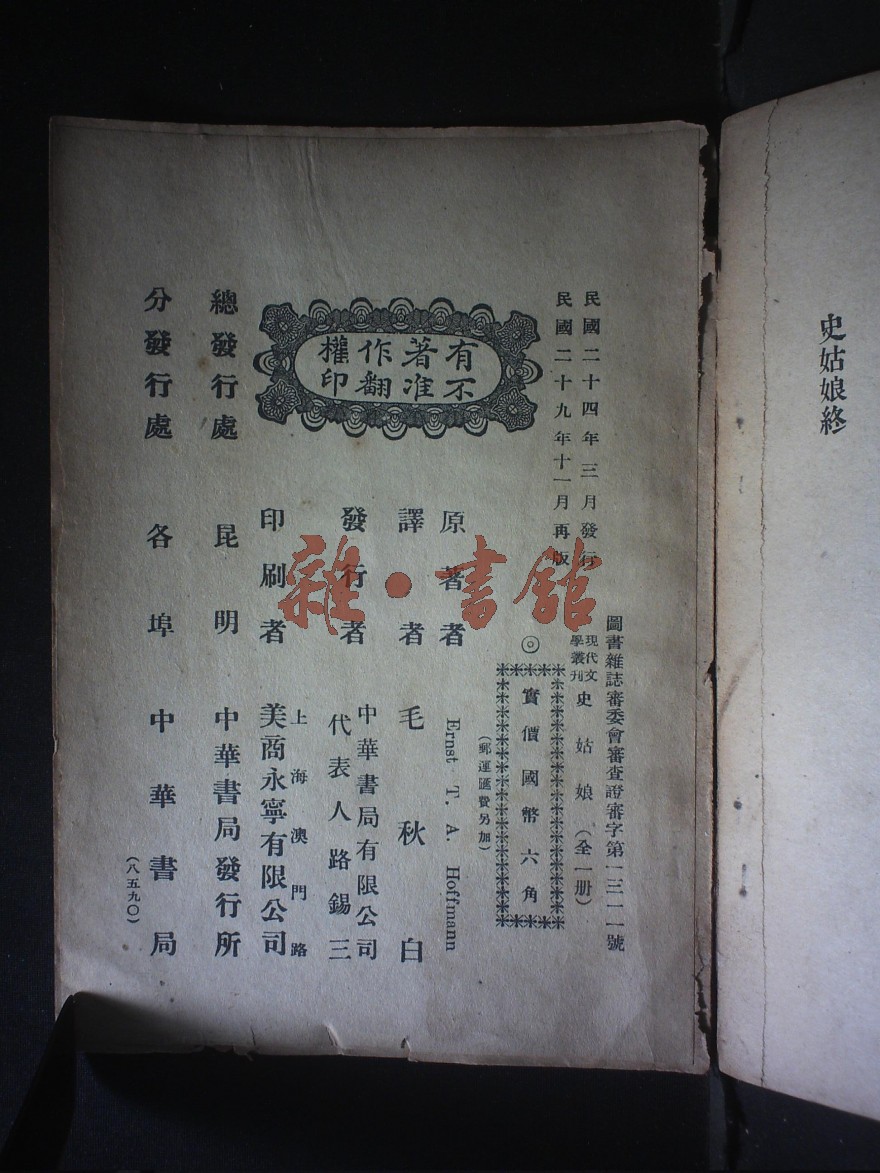 史姑娘終
圖書雜誌審委會審查證審字第一三一一號
民國二十四年三月發行
民國二十九年十一月再版
現代文學叢刊
史姑娘（全一册）
◎實價國幣六角
（郵運匯費另加）
有不著准作翻權印
原著者 Ernst T. A. Hoffmann
譯者 毛秋白
發行者 中華書局有限公司
代表人路錫三
印刷者 上海澳門路
美商永寧有限公司
總發行處 昆明 中華書局發行所
分發行處 各埠 中華書局
（八五九〇）
雜·書館